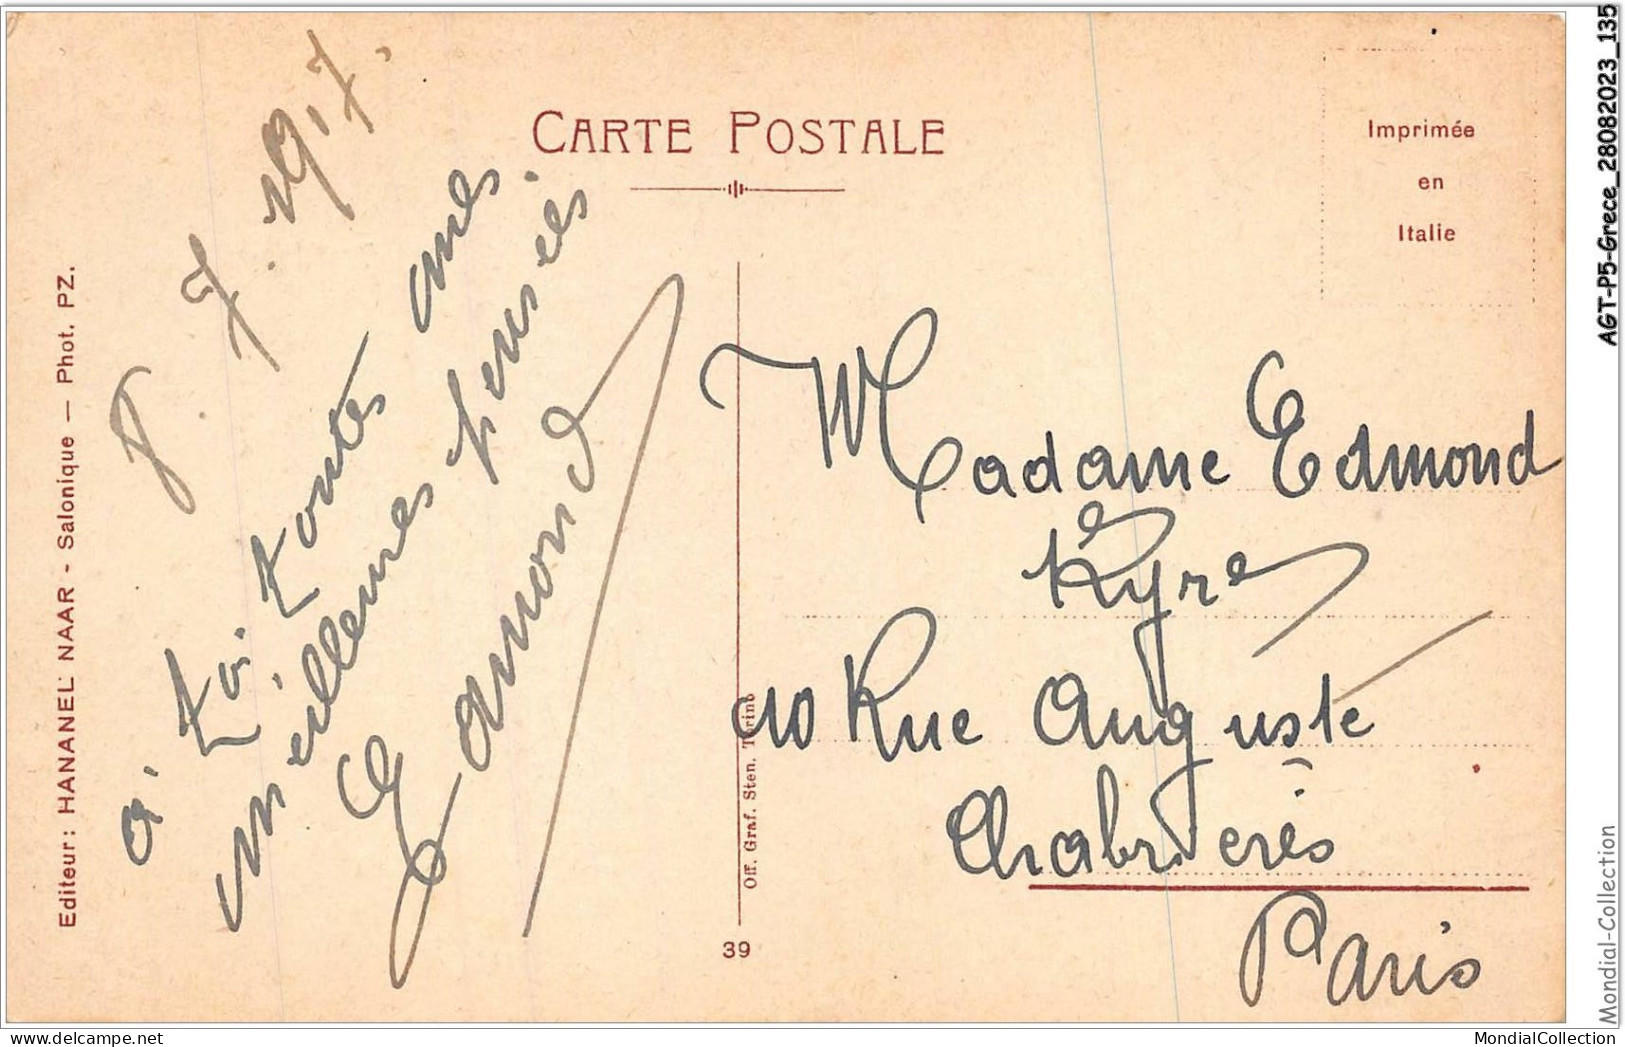 CARTE POSTALE
Imprimée
en
Italie
7. 1917.
à toi toutes mes
meilleures pensées
Edmond
Madame Edmond
Kyre
10 Rue Auguste
Chabrières
Paris
Editeur: HANANEL NAAR - Salonique — Phot. PZ.
Off. Graf. Sten. Torino
39
AGT-P5-Grece_28082023_135
Mondial-Collection
MondialCollection